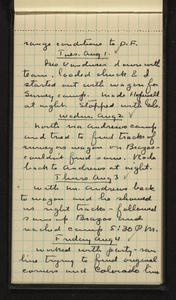 range conditions to D.F.
Tues. Aug. 1.
Geo Vandiveer down with
team, loaded chuck & I
started out with wagon for
Survey camp. Made Hopewell
at night. Stopped with
Wednes. Aug 2
North via Andrews camp
and tried to find tracks of
surveyors wagon on Brazos
couldn't find same. Rode
back to Andrews at night.
Thurs Aug 3
with Mr. Andrews back
to wagon and he showed
us right tracks - followed
same up Brazos and
reached camp 5:30 P.M.
Friday Aug 4
worked with party ran
line trying to find original
corners and Colorado line